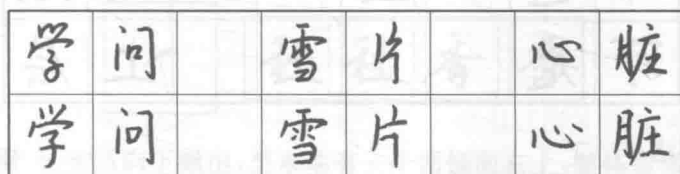 学问 雪片 心脏
学问 雪片 心脏